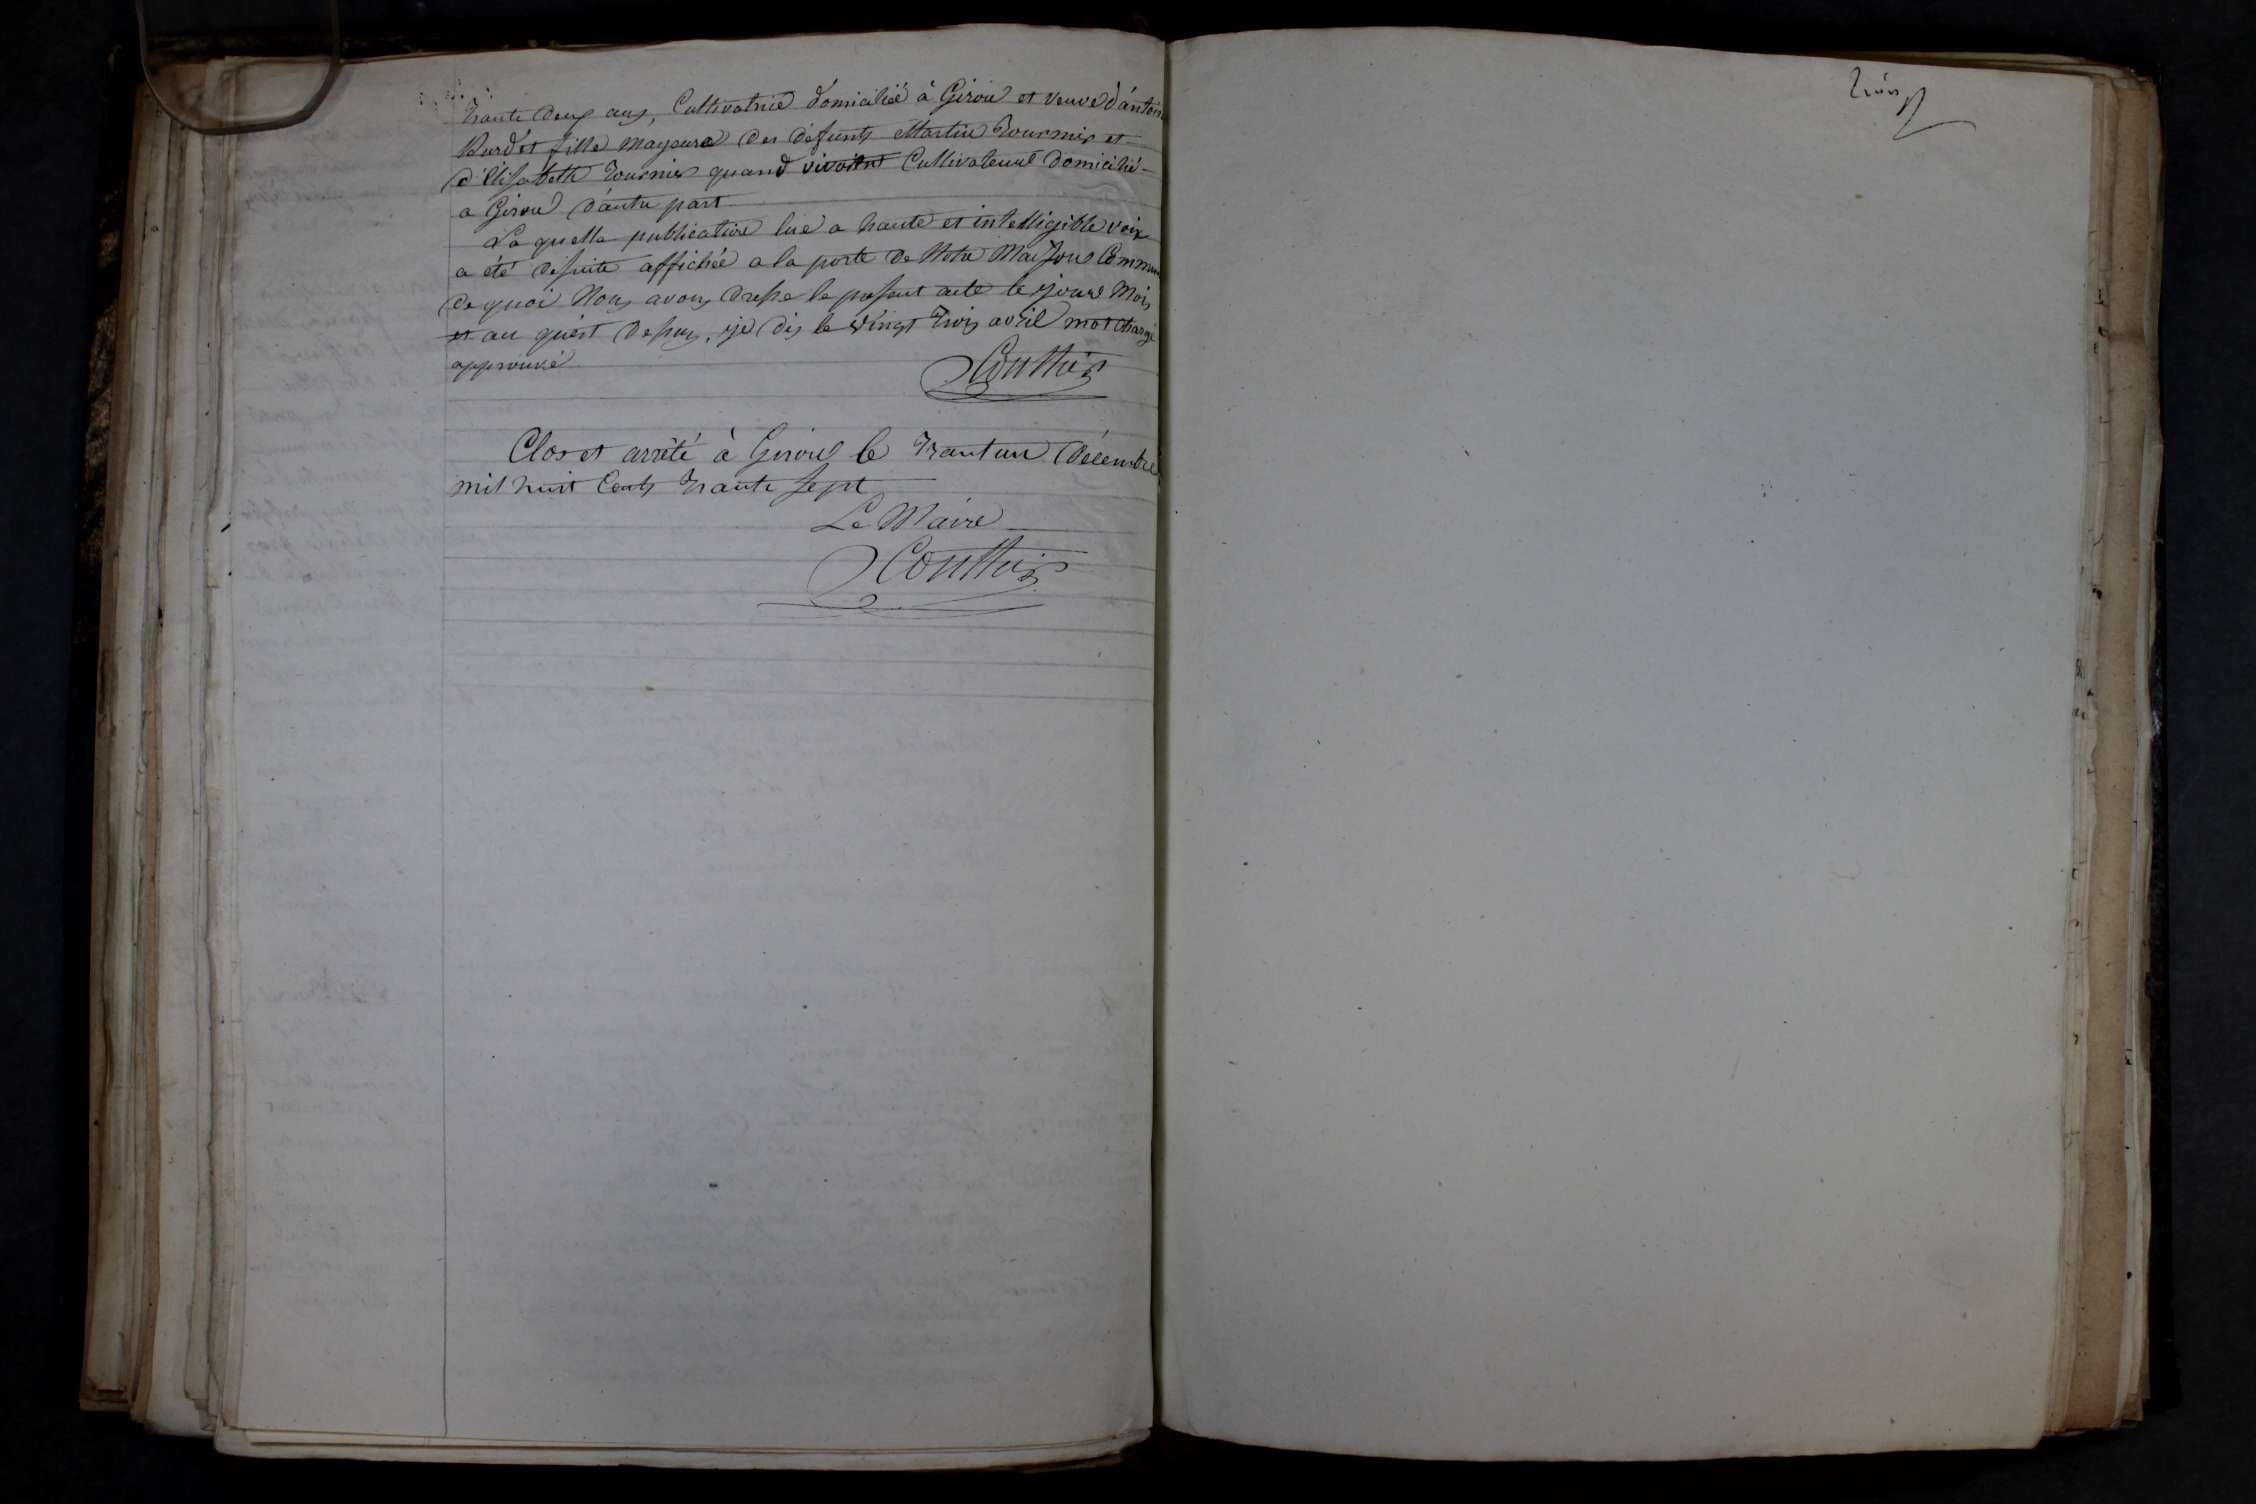 trante deux ans, Cultivatrice domiciliée à Giron et veuve d'antoine
Burdet fille mayeure des défunts Martin Tournier et
d'Elisabeth Tournier quand vivoient Cultivateurs domicilié
a Giron d'autre part
La quelle publication lue a haute et intelligible voix
a été desuite affichée a la porte de Notre Maison Commune
de quoi Nous avons dressé le présent acte le jours Mois
et an quést dessus, je dis le Vingt trois avril mot changé
approuvé
Couttier
Clos et arrêté à Giron le trantun Décembre
mil huit Cents trante sept
Le Maire
Couttier
trois